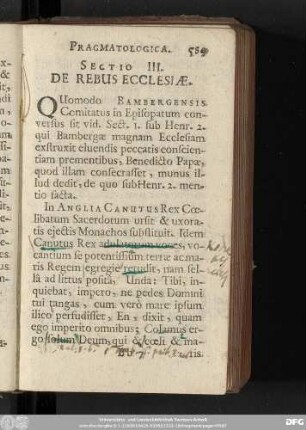 PRAGMATOLOGICA. 589
SECTIO III.
DE REBUS ECCLESIÆ.
QUomodo BAMBERGENSIS
Comitatus in Episopatum con-
versus sit vid. Sect. 1. sub Henr. 2.
qui Bambergæ magnam Ecclesiam
exstruxit eluendis peccatis conscien-
tiam prementibus, Benedicto Papæ,
quod illam consecrasset, munus il-
lud dedit, de quo sub Henr. 2. men-
tio facta.
In ANGLIA CANUTUS Rex Cœ-
libatum Sacerdotum ursit & uxora-
tis ejectis Monachos substituit. Idem
Canutus Rex adulatorum voces, vo-
cantium se potentissimum terræ ac ma-
ris Regem egregie retudit, nam sel-
la ad littus posita, Unda: Tibi, in-
quiebat, impero, ne pedes Domini
tui tangas, cum verò mare ipsum
ilico perfudisset, En, dixit, quam
ego imperito omnibus; Colamus er-
go solum Deum, qui & cœli & ma-
ris.